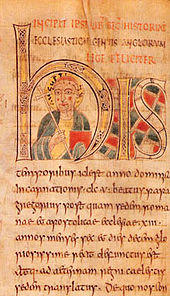 INCIPIT IPSIUS HISTORIAE
ECCLESIASTICAE GENTIS ANGLORUM
LEGE FELICITER
his
temporibus idest anno domini
Incarnationis dc v beatus papa
gregorius sedem roma
nae et apostolicae ecclesiae xiii
annos menses sex et dies decem glo
rexit defunctus est
atq; ad aeternam regni caelestis
sedem translatus. De quo nos